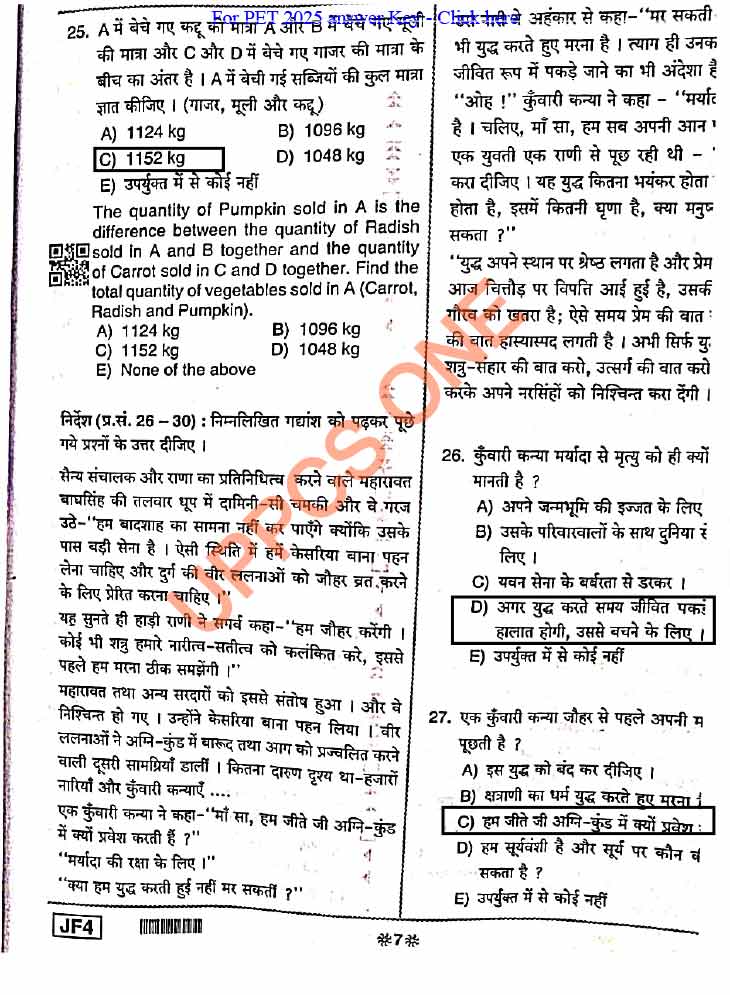 For PET 2025 answer Key - Click here
25. A में बेचे गए कद्दू की मात्रा A और B में बेचे गए मूली
की मात्रा और C और D में बेचे गए गाजर की मात्रा के
बीच का अंतर है । A में बेची गई सब्जियों की कुल मात्रा
ज्ञात कीजिए । (गाजर, मूली और कद्दू)
A) 1124 kg B) 1096 kg
C) 1152 kg D) 1048 kg
E) उपर्युक्त में से कोई नहीं
The quantity of Pumpkin sold in A is the
difference between the quantity of Radish
sold in A and B together and the quantity
of Carrot sold in C and D together. Find the
total quantity of vegetables sold in A (Carrot,
Radish and Pumpkin).
A) 1124 kg B) 1096 kg
C) 1152 kg D) 1048 kg
E) None of the above
निर्देश (प्र.सं. 26 – 30) : निम्नलिखित गद्यांश को पढ़कर पूछे
गये प्रश्नों के उत्तर दीजिए ।
सैन्य संचालक और राणा का प्रतिनिधित्व करने वाले महारावत
बाघसिंह की तलवार धूप में दामिनी-सी चमकी और वे गरज
उठे-"हम बादशाह का सामना नहीं कर पाएँगे क्योंकि उसके
पास बड़ी सेना है । ऐसी स्थिति में हमें केसरिया बाना पहन
लेना चाहिए और दुर्ग की वीर ललनाओं को जौहर व्रत करने
के लिए प्रेरित करना चाहिए ।"
यह सुनते ही हाड़ी राणी ने सगर्व कहा-"हम जौहर करेंगी ।
कोई भी शत्रु हमारे नारीत्व-सतीत्व को कलंकित करे, इससे
पहले हम मरना ठीक समझेंगी ।"
महारावत तथा अन्य सरदारों को इससे संतोष हुआ । और वे
निश्चिन्त हो गए । उन्होंने केसरिया बाना पहन लिया । वीर
ललनाओं ने अग्नि-कुंड में बारूद तथा आग को प्रज्वलित करने
वाली दूसरी सामग्रियाँ डालीं । कितना दारुण दृश्य था-हजारों
नारियाँ और कुँवारी कन्याएँ ....
एक कुँवारी कन्या ने कहा-"माँ सा, हम जीते जी अग्नि-कुंड
में क्यों प्रवेश करती हैं ?"
"मर्यादा की रक्षा के लिए ।"
"क्या हम युद्ध करती हुई नहीं मर सकतीं ?"
ने अहंकार से कहा-"मर सकती
भी युद्ध करते हुए मरना है । त्याग ही उनक
जीवित रूप में पकड़े जाने का भी अंदेशा है
"ओह !" कुँवारी कन्या ने कहा – "मर्याद
है । चलिए, माँ सा, हम सब अपनी आन
एक युवती एक राणी से पूछ रही थी –
करा दीजिए । यह युद्ध कितना भयंकर होता
होता है, इसमें कितनी घृणा है, क्या मनुष्
सकता ?"
"युद्ध अपने स्थान पर श्रेष्ठ लगता है और प्रेम
आज चित्तौड़ पर विपत्ति आई हुई है, उसकी
गौरव को खतरा है; ऐसे समय प्रेम की बात
की बात हास्यास्पद लगती है । अभी सिर्फ यु
शत्रु-संहार की बात करो, उत्सर्ग की बात करो
करके अपने नरसिंहों को निश्चिन्त करा देंगी ।
26. कुँवारी कन्या मर्यादा से मृत्यु को ही क्यों
मानती है ?
A) अपने जन्मभूमि की इज्जत के लिए
B) उसके परिवारवालों के साथ दुनिया
लिए ।
C) यवन सेना के बर्बरता से डरकर ।
D) अगर युद्ध करते समय जीवित पकड़
हालात होगी, उससे बचने के लिए ।
E) उपर्युक्त में से कोई नहीं
27. एक कुँवारी कन्या जौहर से पहले अपनी म
पूछती है ?
A) इस युद्ध को बंद कर दीजिए ।
B) क्षत्राणी का धर्म युद्ध करते हुए मरना
C) हम जीते जी अग्नि-कुंड में क्यों प्रवेश
D) हम सूर्यवंशी है और सूर्य पर कौन
सकता है ?
E) उपर्युक्त में से कोई नहीं
UPPCS ONE
JF4
※7※